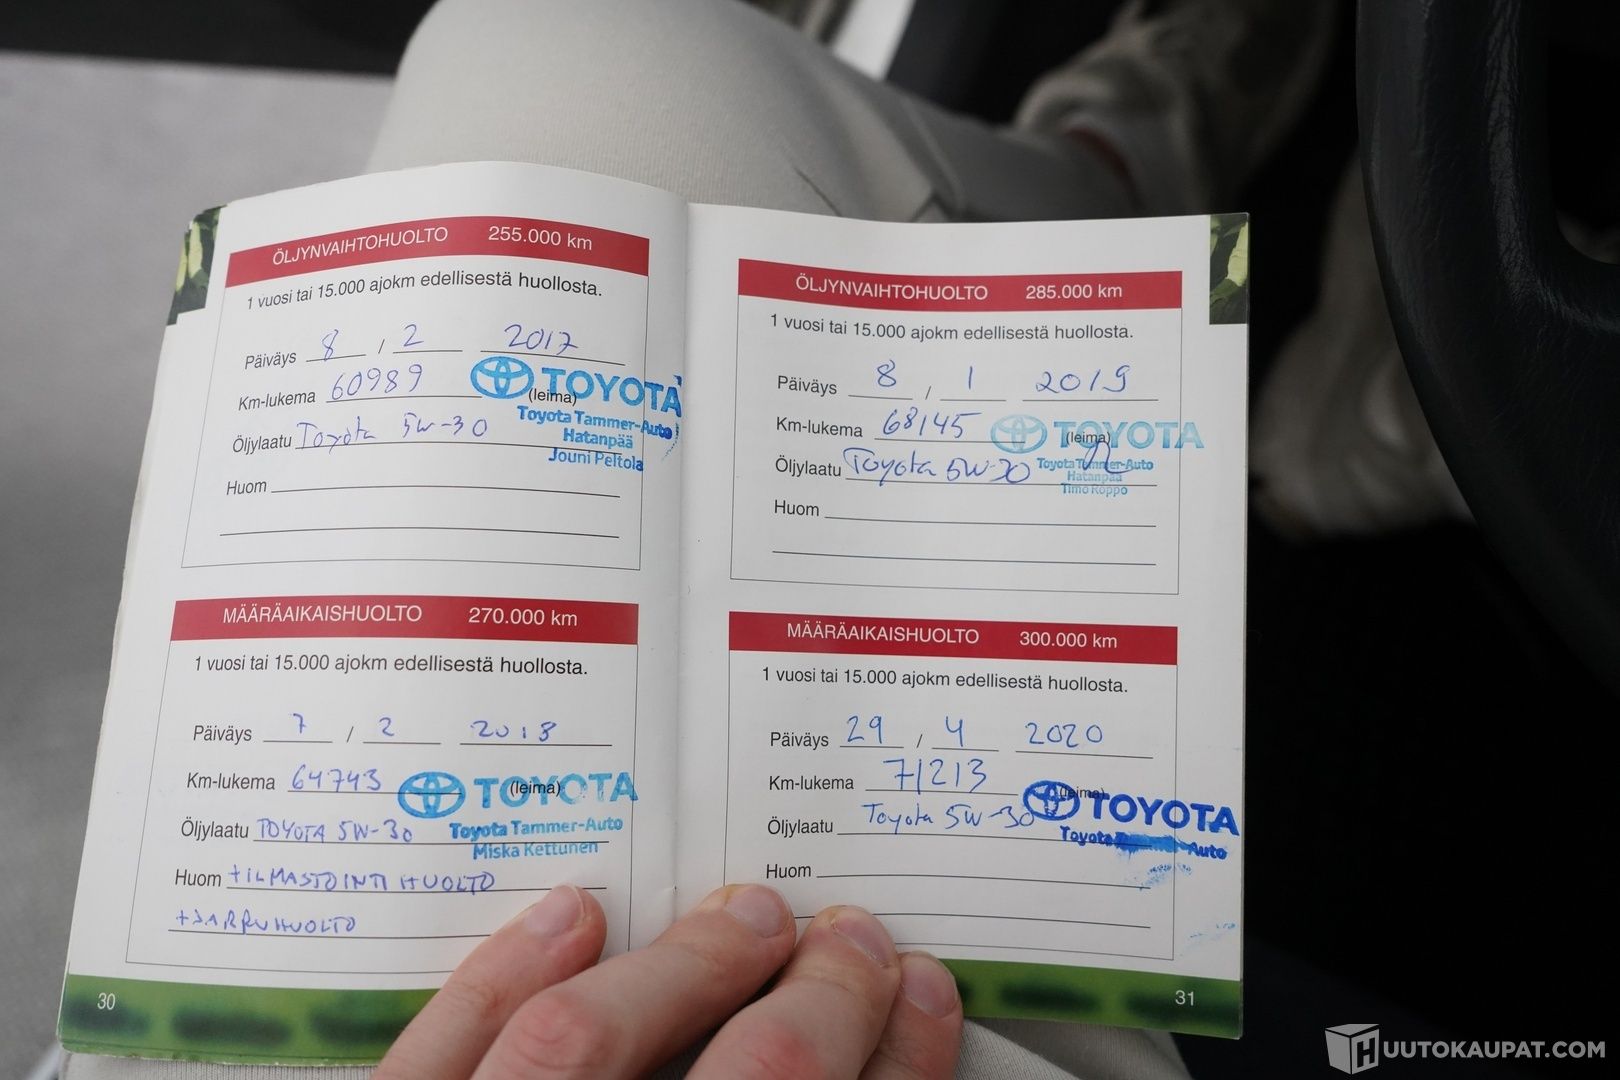 ÖLJYNVAIHTOHUOLTO 255.000 km
1 vuosi tai 15.000 ajokm edellisestä huollosta.
Päiväys 8 / 2 2017
Km-lukema 60989 (leima)
TOYOTA
Toyota Tammer-Auto
Hatanpää
Jouni Peltola
Öljylaatu Toyota 5W-30
Huom
MÄÄRÄAIKAISHUOLTO 270.000 km
1 vuosi tai 15.000 ajokm edellisestä huollosta.
Päiväys 7 / 2 2018
Km-lukema 64743 (leima)
TOYOTA
Toyota Tammer-Auto
Miska Kettunen
Öljylaatu TOYOTA 5W-30
Huom +ILMASTOINTI HUOLTO
+JARRUHUOLTO
30
ÖLJYNVAIHTOHUOLTO 285.000 km
1 vuosi tai 15.000 ajokm edellisestä huollosta.
Päiväys 8 / 1 2019
Km-lukema 68145 (leima)
TOYOTA
Toyota Tammer-Auto
Hatanpää
Timo Roppo
Öljylaatu Toyota 5W-30
Huom
MÄÄRÄAIKAISHUOLTO 300.000 km
1 vuosi tai 15.000 ajokm edellisestä huollosta.
Päiväys 29 / 4 2020
Km-lukema 71213 (leima)
TOYOTA
Toyota Auto
Öljylaatu Toyota 5W-30
Huom
31
HUUTOKAUPAT.COM